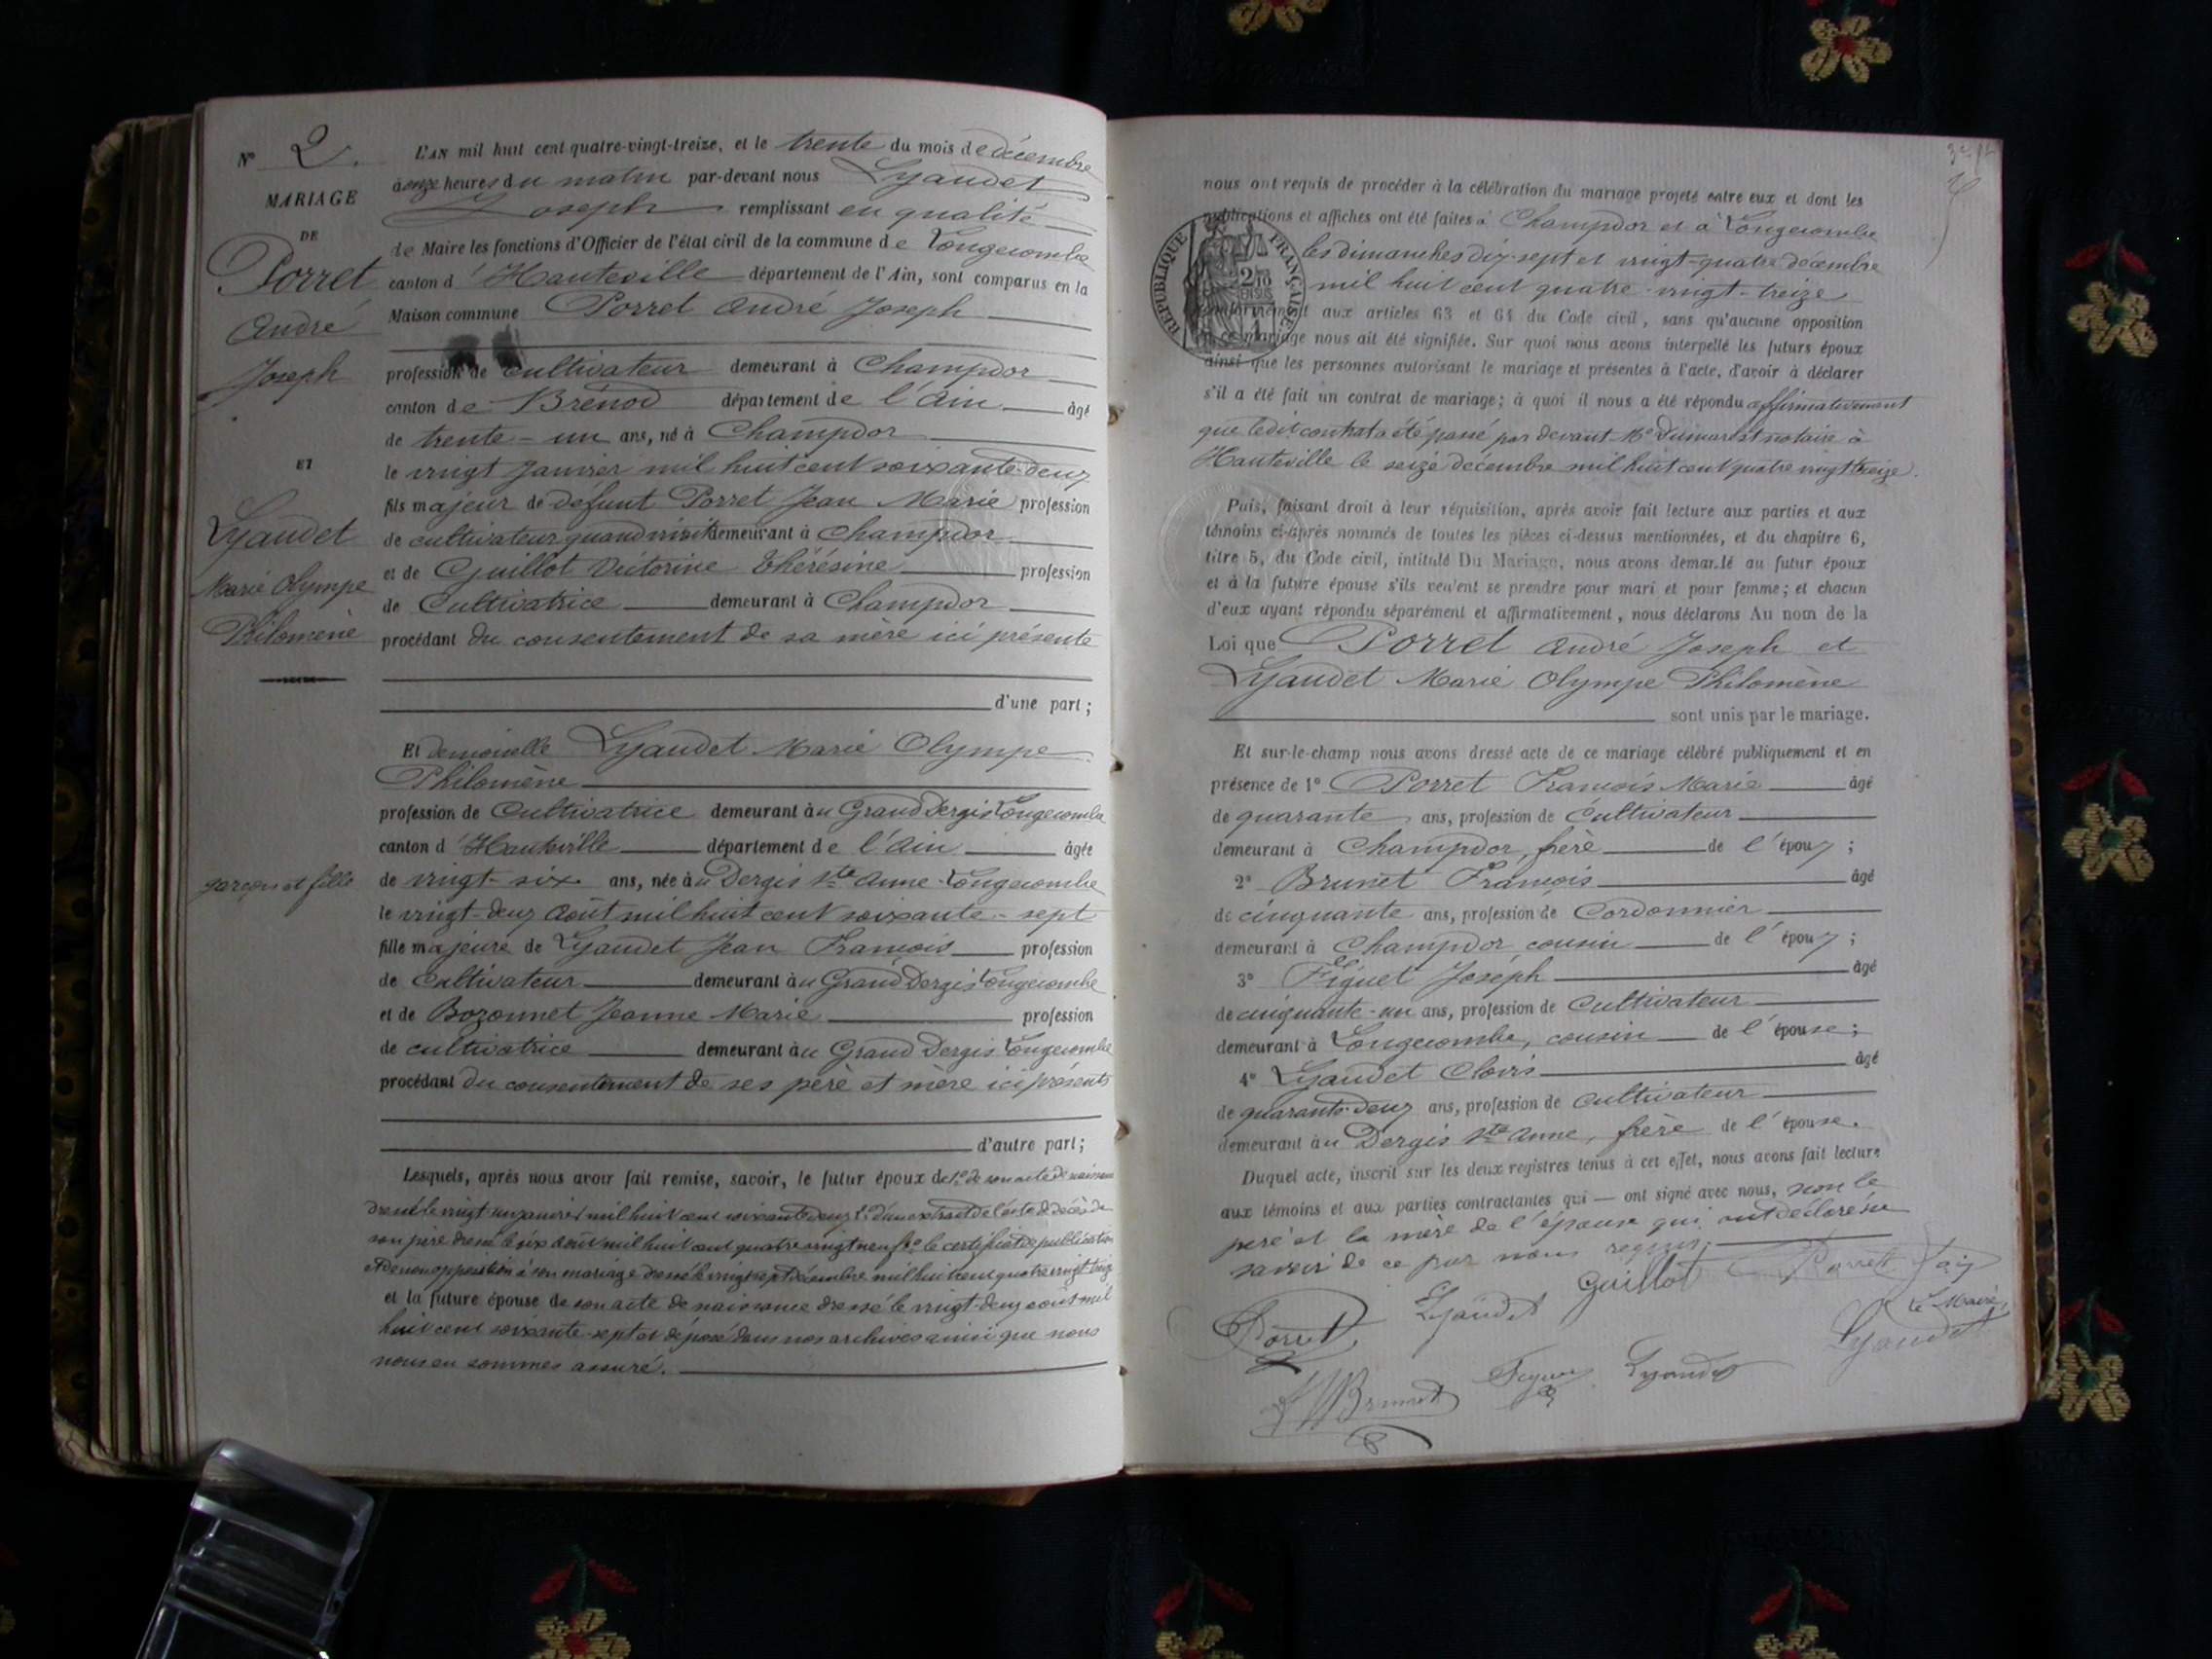 N° 2.
MARIAGE
DE
Porret
André
Joseph
ET
Lyaudet
Marie Olympe
Philomène
garçon et fille
L'AN mil huit cent quatre-vingt-treize, et le trente du mois de décembre
à onze heures du matin par-devant nous Lyaudet
Joseph remplissant en qualité
de Maire les fonctions d'Officier de l'état civil de la commune de Longecombe
canton d'Hauteville département de l'Ain, sont comparus en la
Maison commune Porret André Joseph
profession de cultivateur demeurant à Champdor
canton de Brénod département de l'Ain âgé
de trente-un ans, né à Champdor
le vingt Janvier mil huit cent soixante-deux
fils majeur de défunt Porret Jean Marie profession
de cultivateur quand vivait demeurant à Champdor
et de Guillot Victorine Thérésine profession
de Cultivatrice demeurant à Champdor
procédant du consentement de sa mère ici présente
d'une part;
Et demoiselle Lyaudet Marie Olympe
Philomène
profession de Cultivatrice demeurant au Grand Dergis Longecombe
canton d'Hauteville département de l'Ain âgée
de vingt-six ans, née au Dergis Ste Anne-Longecombe
le vingt-deux Août mil huit cent soixante-sept
fille majeure de Lyaudet Jean François profession
de Cultivateur demeurant au Grand Dergis Longecombe
et de Bozonnet Jeanne Marie profession
de cultivatrice demeurant au Grand Dergis Longecombe
procédant du consentement de ses père et mère ici présents
d'autre part;
Lesquels, après nous avoir fait remise, savoir, le futur époux de 1° de son acte de naissance
dressé le vingt-un janvier mil huit cent soixante deux 2° d'un extrait de l'acte de décès de
son père dressé le six août mil huit cent quatre vingt neuf 3° le certificat de publication
et de non opposition à son mariage dressé le vingt sept décembre mil huit cent quatre vingt treize
et la future épouse de son acte de naissance dressé le vingt-deux août mil
huit cent soixante-sept et déposé dans nos archives ainsi que nous
nous en sommes assuré.
nous ont requis de procéder à la célébration du mariage projeté entre eux et dont les
publications et affiches ont été faites à Champdor et à Longecombe
les dimanches dix-sept et vingt-quatre décembre
mil huit cent quatre-vingt-treize
conformément aux articles 63 et 64 du Code civil, sans qu'aucune opposition
à ce mariage nous ait été signifiée. Sur quoi nous avons interpellé les futurs époux
ainsi que les personnes autorisant le mariage et présentes à l'acte, d'avoir à déclarer
s'il a été fait un contrat de mariage; à quoi il nous a été répondu affirmativement
que ledit contrat a été passé par devant Me Dumarest notaire à
Hauteville le seize décembre mil huit cent quatre vingt treize.
RÉPUBLIQUE FRANÇAISE
Puis, faisant droit à leur réquisition, après avoir fait lecture aux parties et aux
témoins ci-après nommés de toutes les pièces ci-dessus mentionnées, et du chapitre 6,
titre 5, du Code civil, intitulé Du Mariage, nous avons demandé au futur époux
et à la future épouse s'ils veulent se prendre pour mari et pour femme; et chacun
d'eux ayant répondu séparément et affirmativement, nous déclarons Au nom de la
Loi que Porret André Joseph et
Lyaudet Marie Olympe Philomène
sont unis par le mariage.
Et sur-le-champ nous avons dressé acte de ce mariage célébré publiquement et en
présence de 1° Porret François Marie âgé
de quarante ans, profession de Cultivateur
demeurant à Champdor, frère de l'époux;
2° Brunet François âgé
de cinquante ans, profession de Cordonnier
demeurant à Champdor cousin de l'époux;
3° Figuet Joseph âgé
de cinquante-un ans, profession de Cultivateur
demeurant à Longecombe, cousin de l'épouse;
4° Lyaudet Clovis âgé
de quarante-deux ans, profession de Cultivateur
demeurant au Dergis Ste Anne, frère de l'épouse.
Duquel acte, inscrit sur les deux registres tenus à cet effet, nous avons fait lecture
aux témoins et aux parties contractantes qui — ont signé avec nous, non le
père et la mère de l'épouse qui ont déclaré ne
savoir de ce par nous requis.
Porret Lyaudet Guillot Porret
Le Maire,
Lyaudet
Brunet Figuet Lyaudet